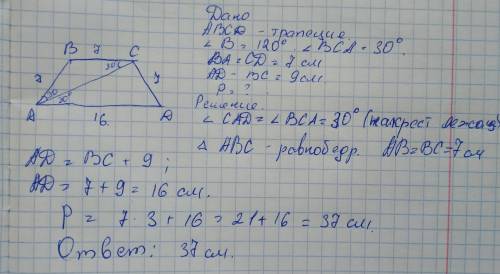 Дано
ABCD - трапеция.
∠B = 120°. ∠BCA = 30°.
BA = CD = 7 см
AD - BC = 9 см
P = ?
Решение.
∠CAD = ∠BCA = 30° (накрест лежащ
△ ABC - равнобедр. AB = BC = 7 см
B 7 C
30°
7 7
30
30°
A D
16.
AD = BC + 9 ;
AD = 7 + 9 = 16 см.
P = 7 · 3 + 16 = 21 + 16 = 37 см.
Ответ: 37 см.